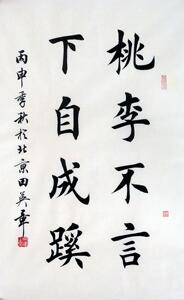 桃李不言
下自成蹊
丙申季秋於北京田英章